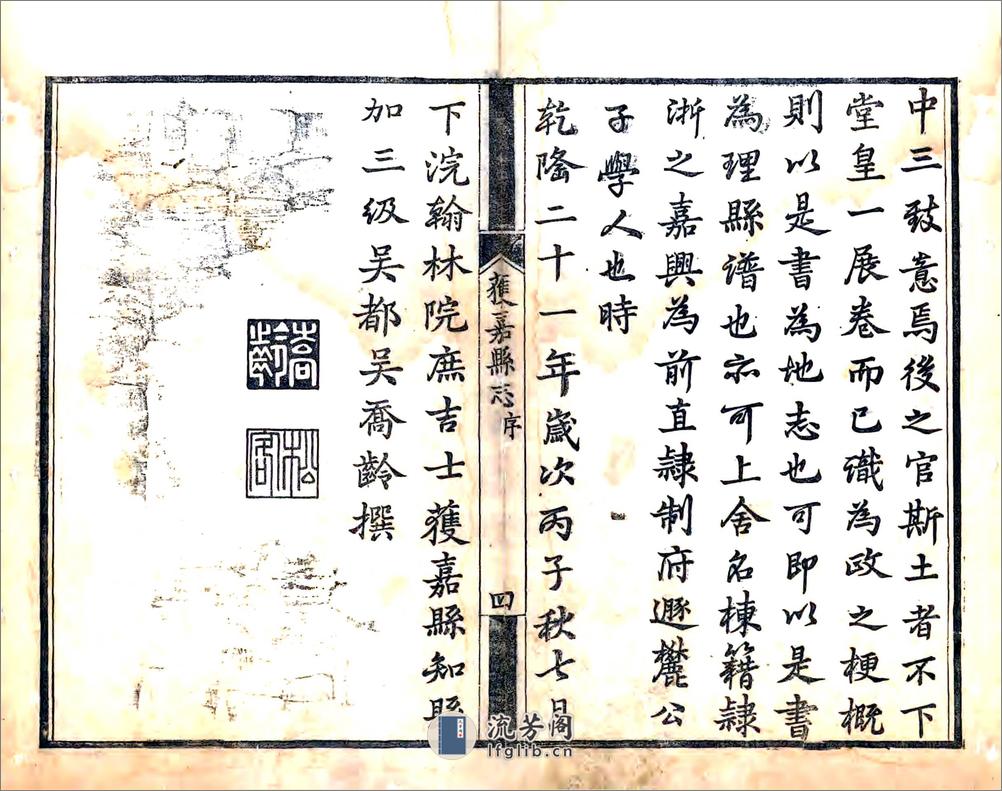 中三致意焉後之官斯土者不下
堂皇一展卷而已識為政之梗概
則以是書為地志也可即以是書
為理縣譜也亦可上舍名棟籍隸
浙之嘉興為前直隸制府遯麓公
子學人也時
乾隆二十一年歲次丙子秋七月
獲嘉縣志 序 四
下浣翰林院庶吉士獲嘉縣知縣
加三级吴都吴喬齡撰
喬齡
松客
流芳阁
lfglib.cn